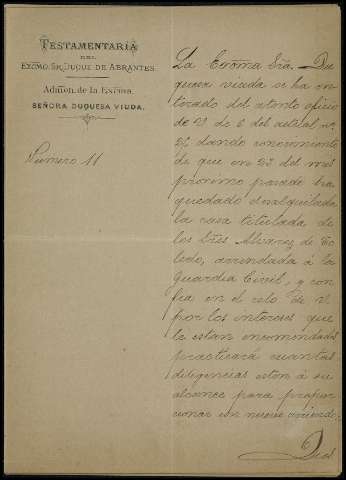 TESTAMENTARÍA
DEL
EXCMO. SR. DUQUE DE ABRANTES
Admón. de la Excma.
SEÑORA DUQUESA VIUDA.
Número 11
La Excma Sra. Du
quesa viuda se ha en
terado del atento oficio
de V. de 6 del actual nº.
dando conocimiento
de que en 22 del mes
proximo pasado ha
quedado desalquilada
la casa titulada de
los Sres Alvarez de To
ledo, arrendada á la
Guardia Civil, y con
fia en el celo de V.
por los intereses que
le estan encomendados
practicará cuantas
diligencias esten á su
alcance para propor
cionar un nuevo arriendo.
Dios